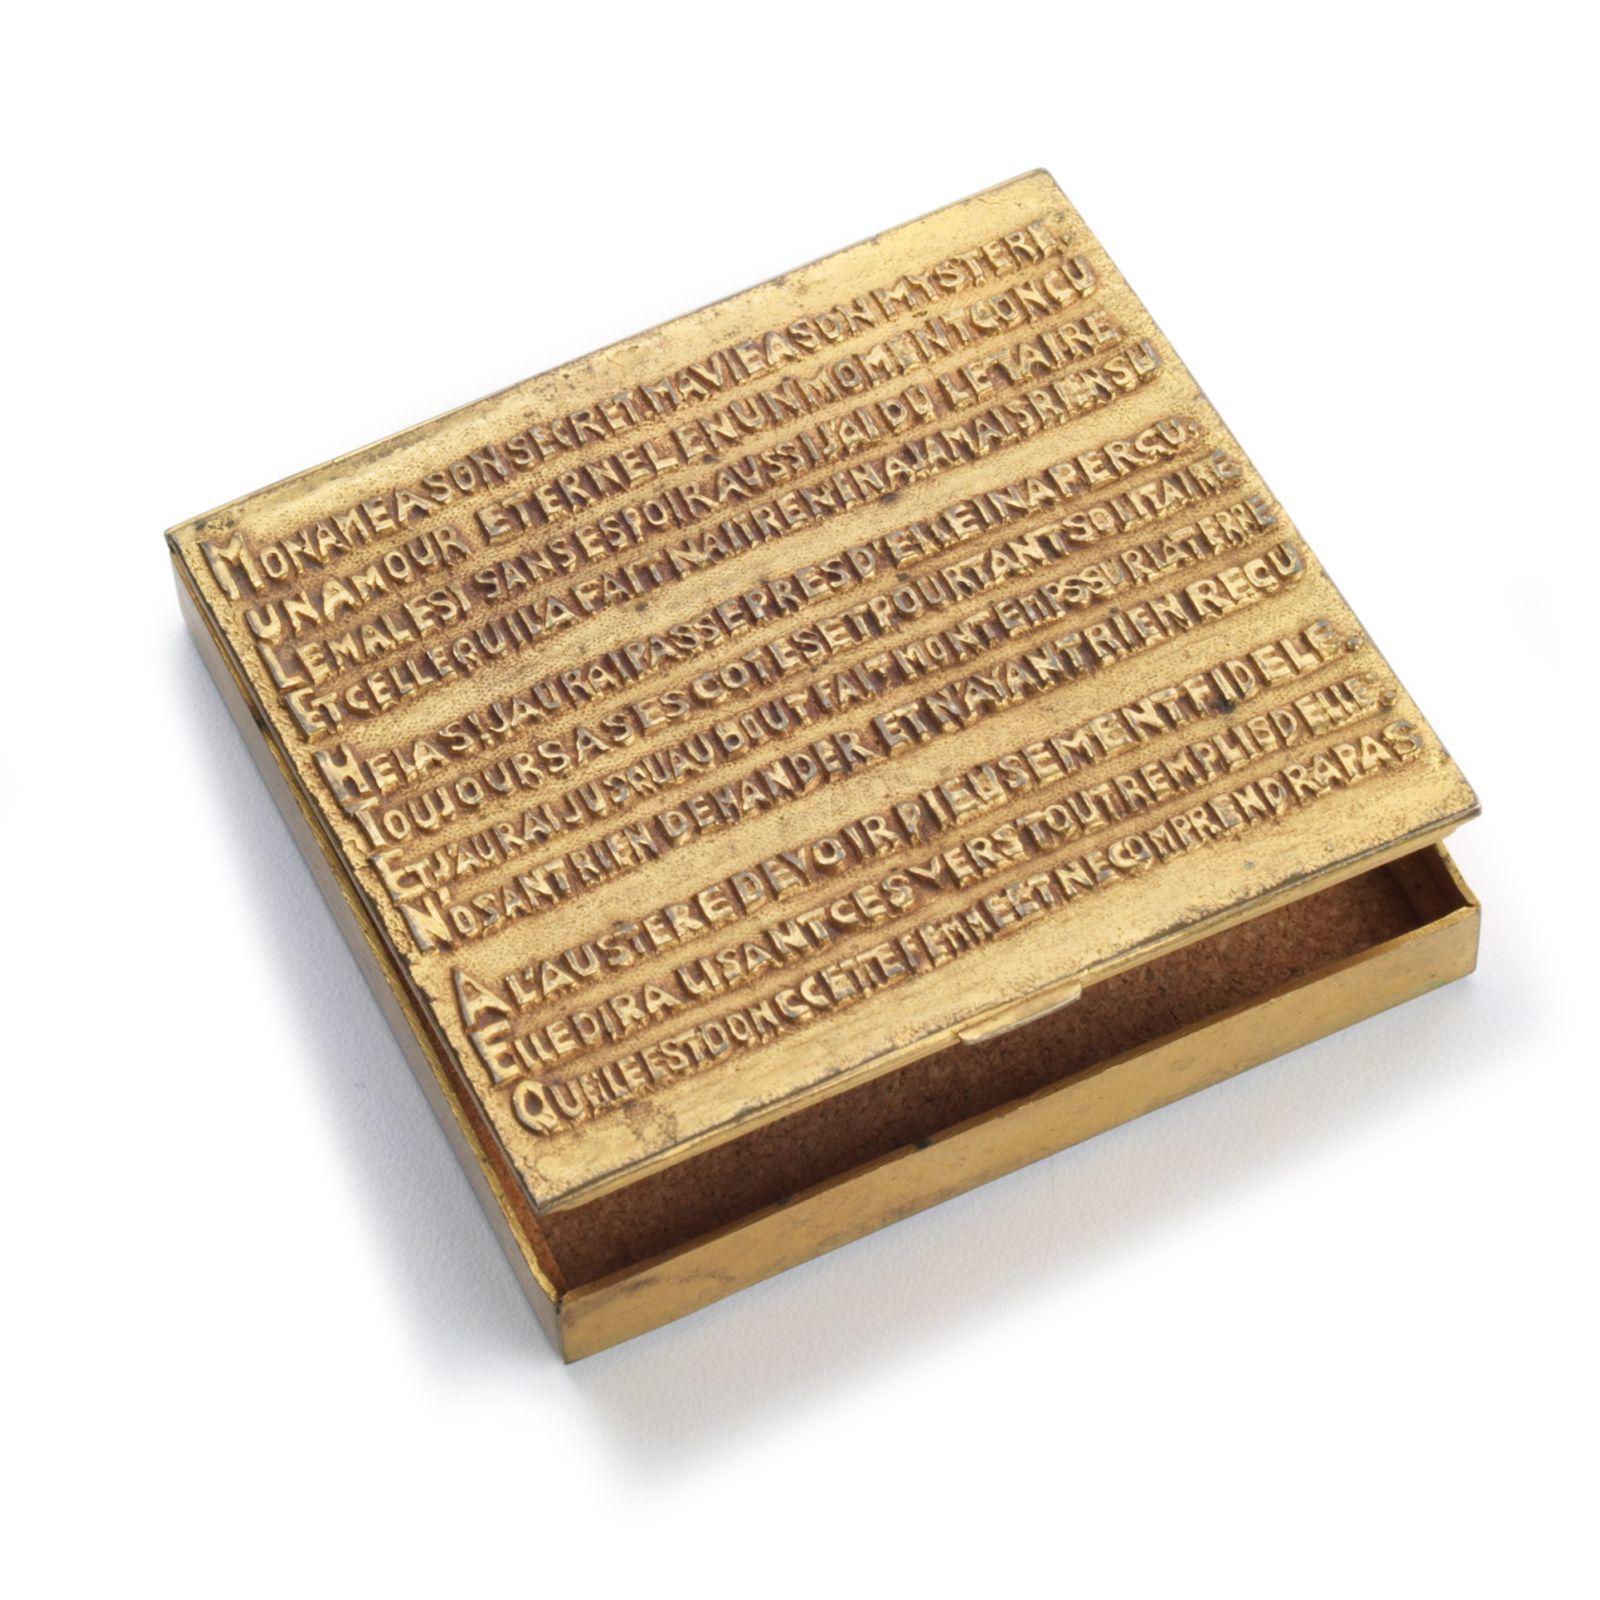 MON AME A SON SECRET MA VIE A SON MYSTERE.
UN AMOUR ETERNEL EN UN MOMENT CONÇU
LE MAL ESI SANS ESPOIR AUSSI J'AI DU LE TAIRE
ET CELLE QUI LA FAIT NAITRE N'EN A JAMAIS RIEN SU
HELAS! J'AURAI PASSE PRES D'ELLE INAPERÇU.
TOUJOURS A SES COTES ET POURTANT SOLITAIRE
ET J'AURAI JUSQU'AU BOUT FAIT MON TEMPS SUR LA TERRE
N'OSANT RIEN DEMANDER ET N'AYANT RIEN REÇU
A L'AUSTERE DEVOIR PIEUSEMENT FIDELE.
ELLE DIRA LISANT CES VERS TOUT REMPLIS D'ELLE:
QUELLE EST DONC CETTE FEMME ET NE COMPRENDRA PAS